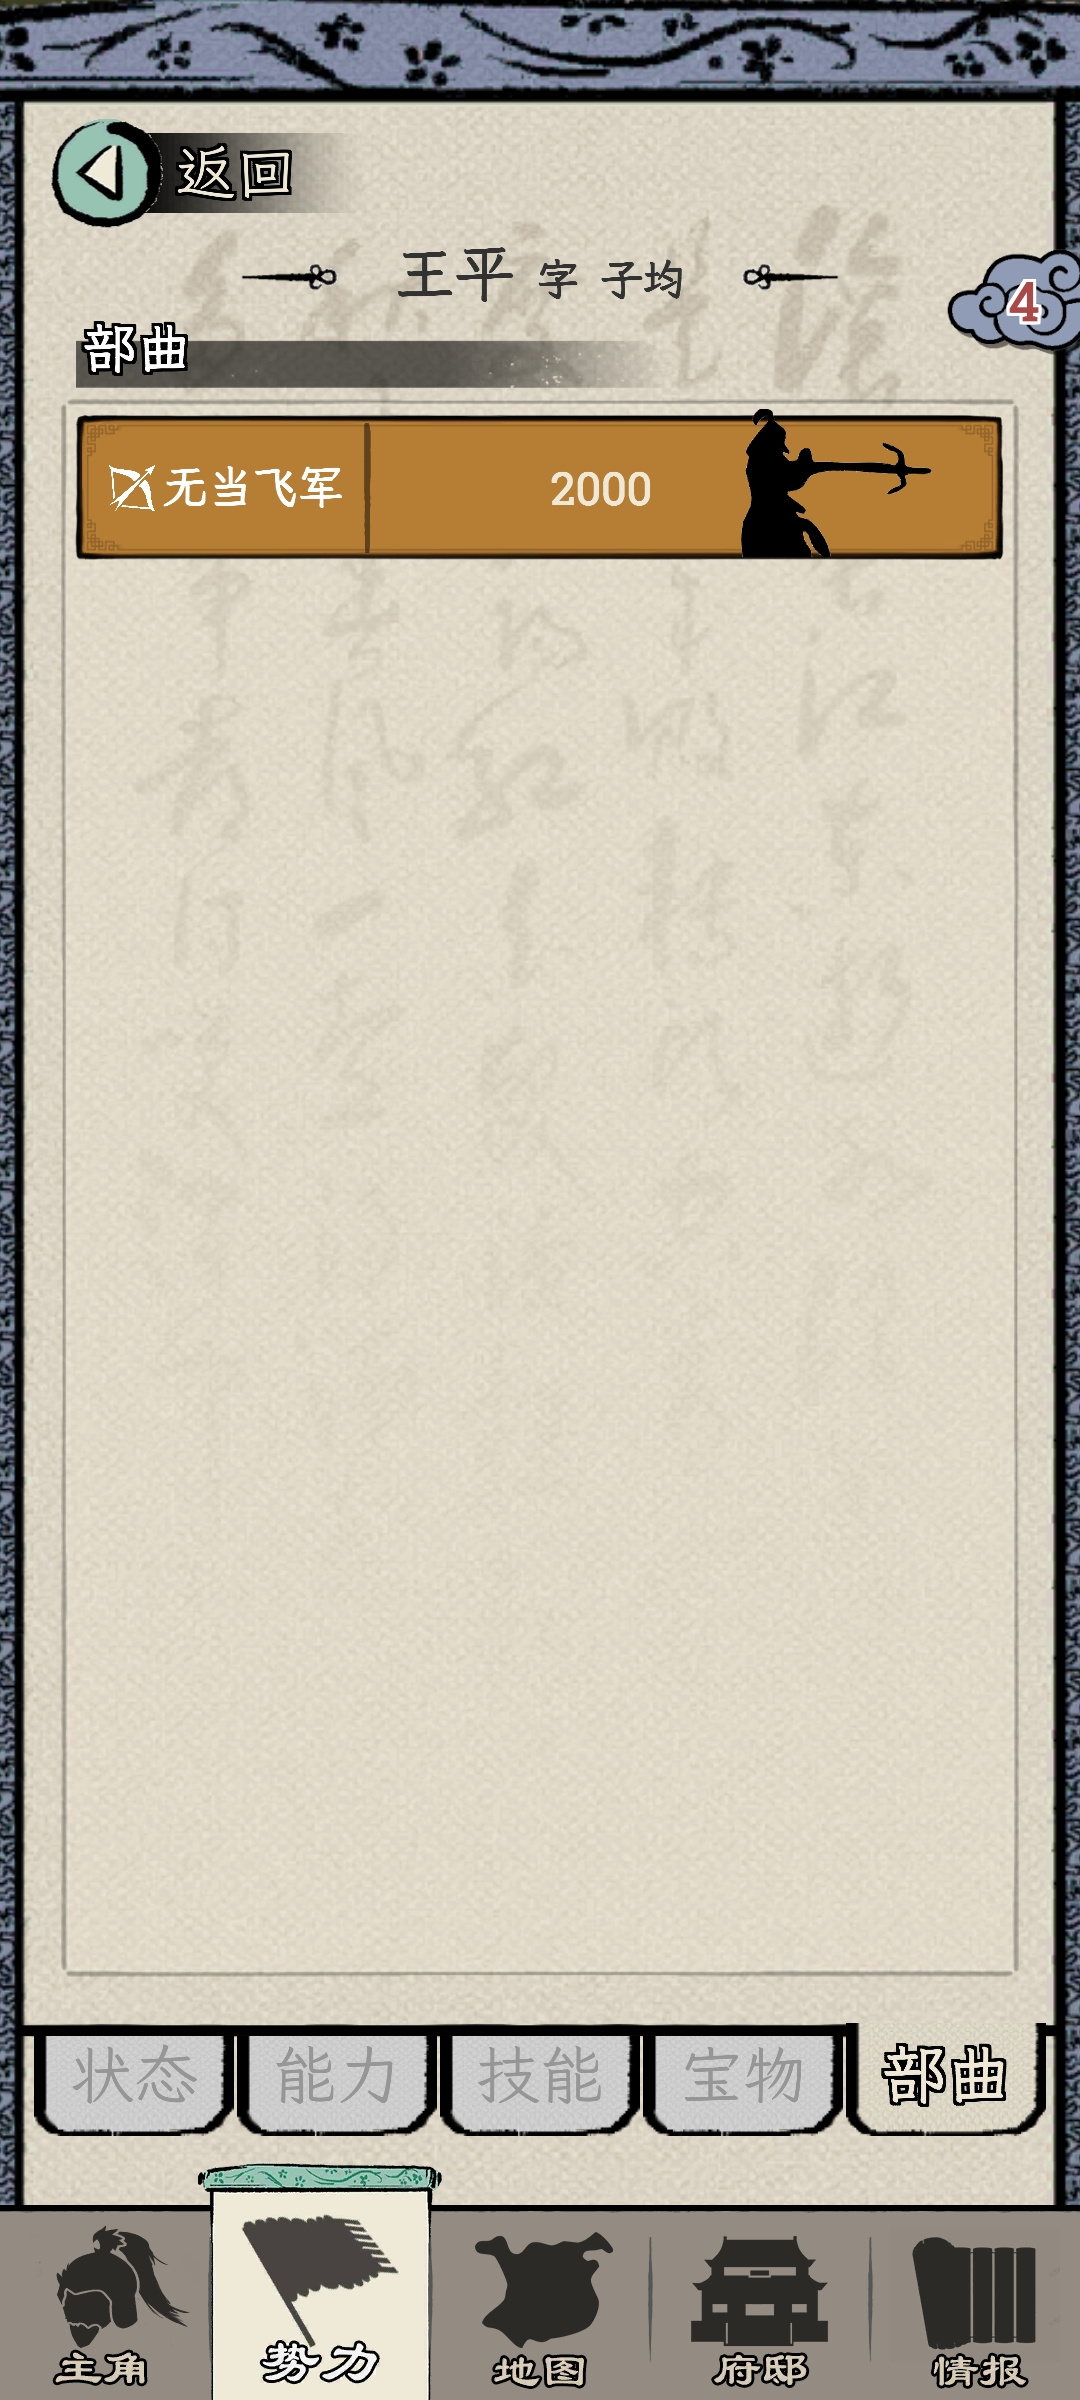 返回
王平 字 子均
4
部曲
无当飞军 2000
状态 能力 技能 宝物 部曲
主角 势力 地图 府邸 情报